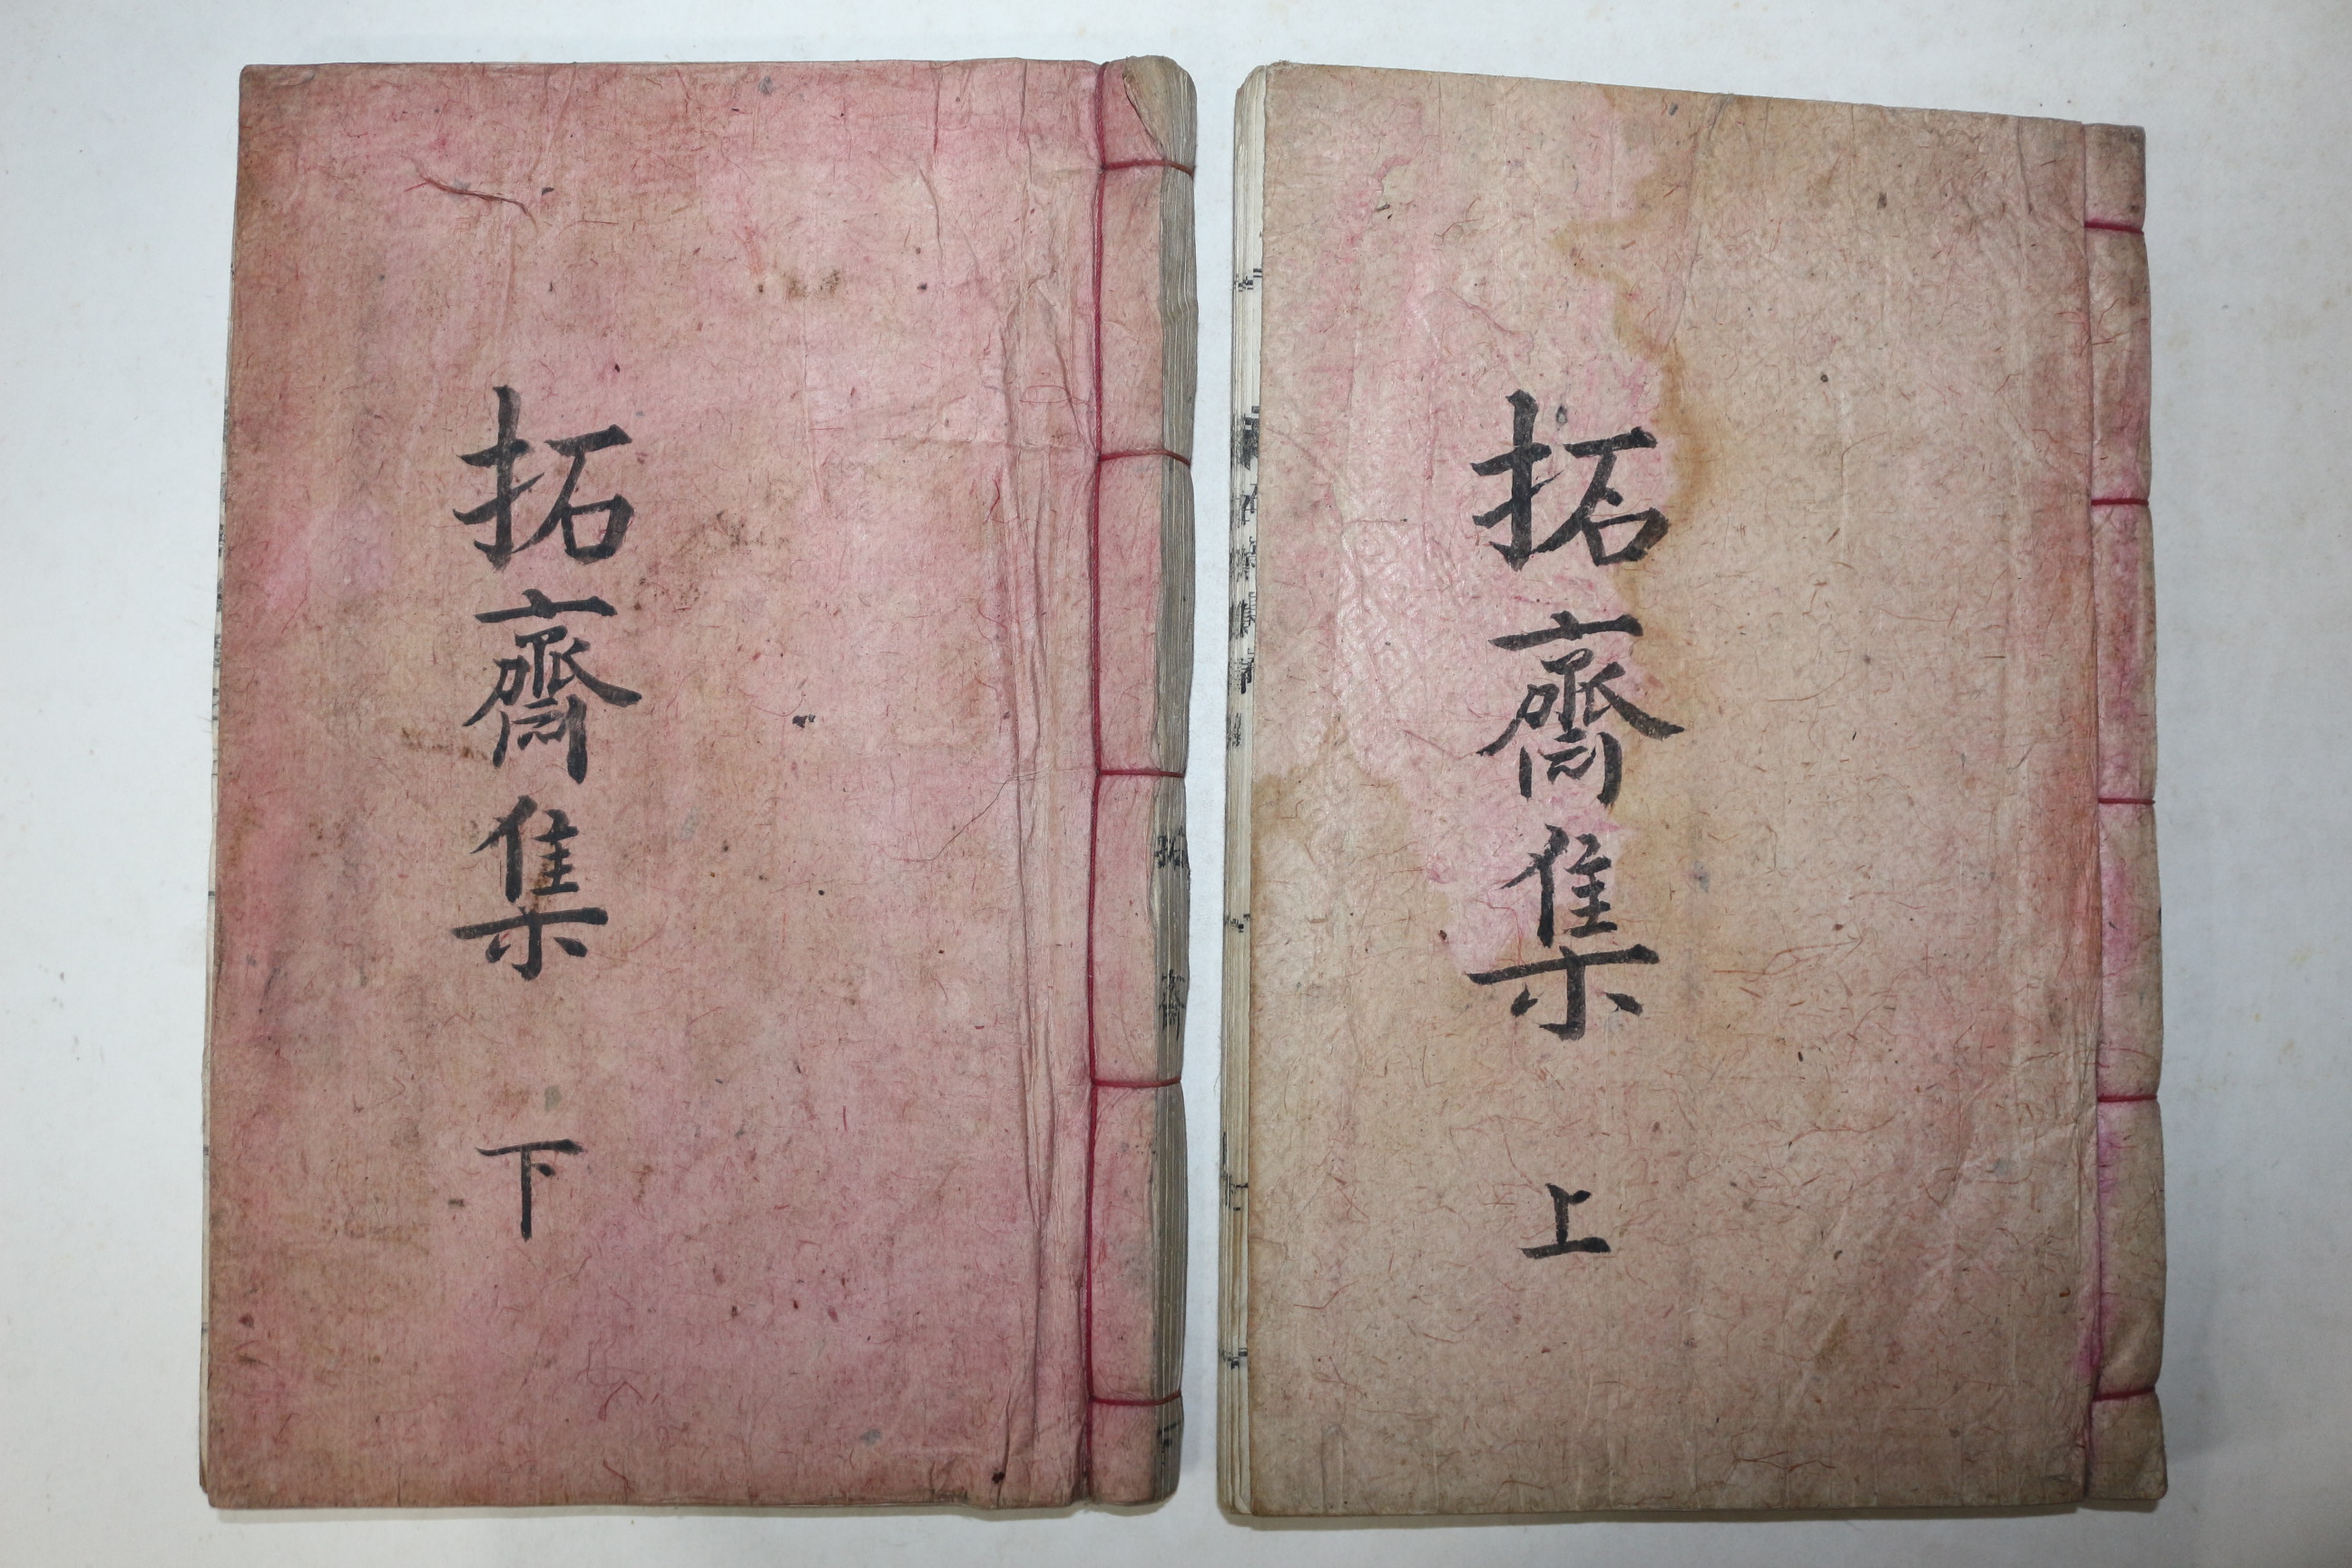 拓齋集 上
拓齋集 下
拓齋